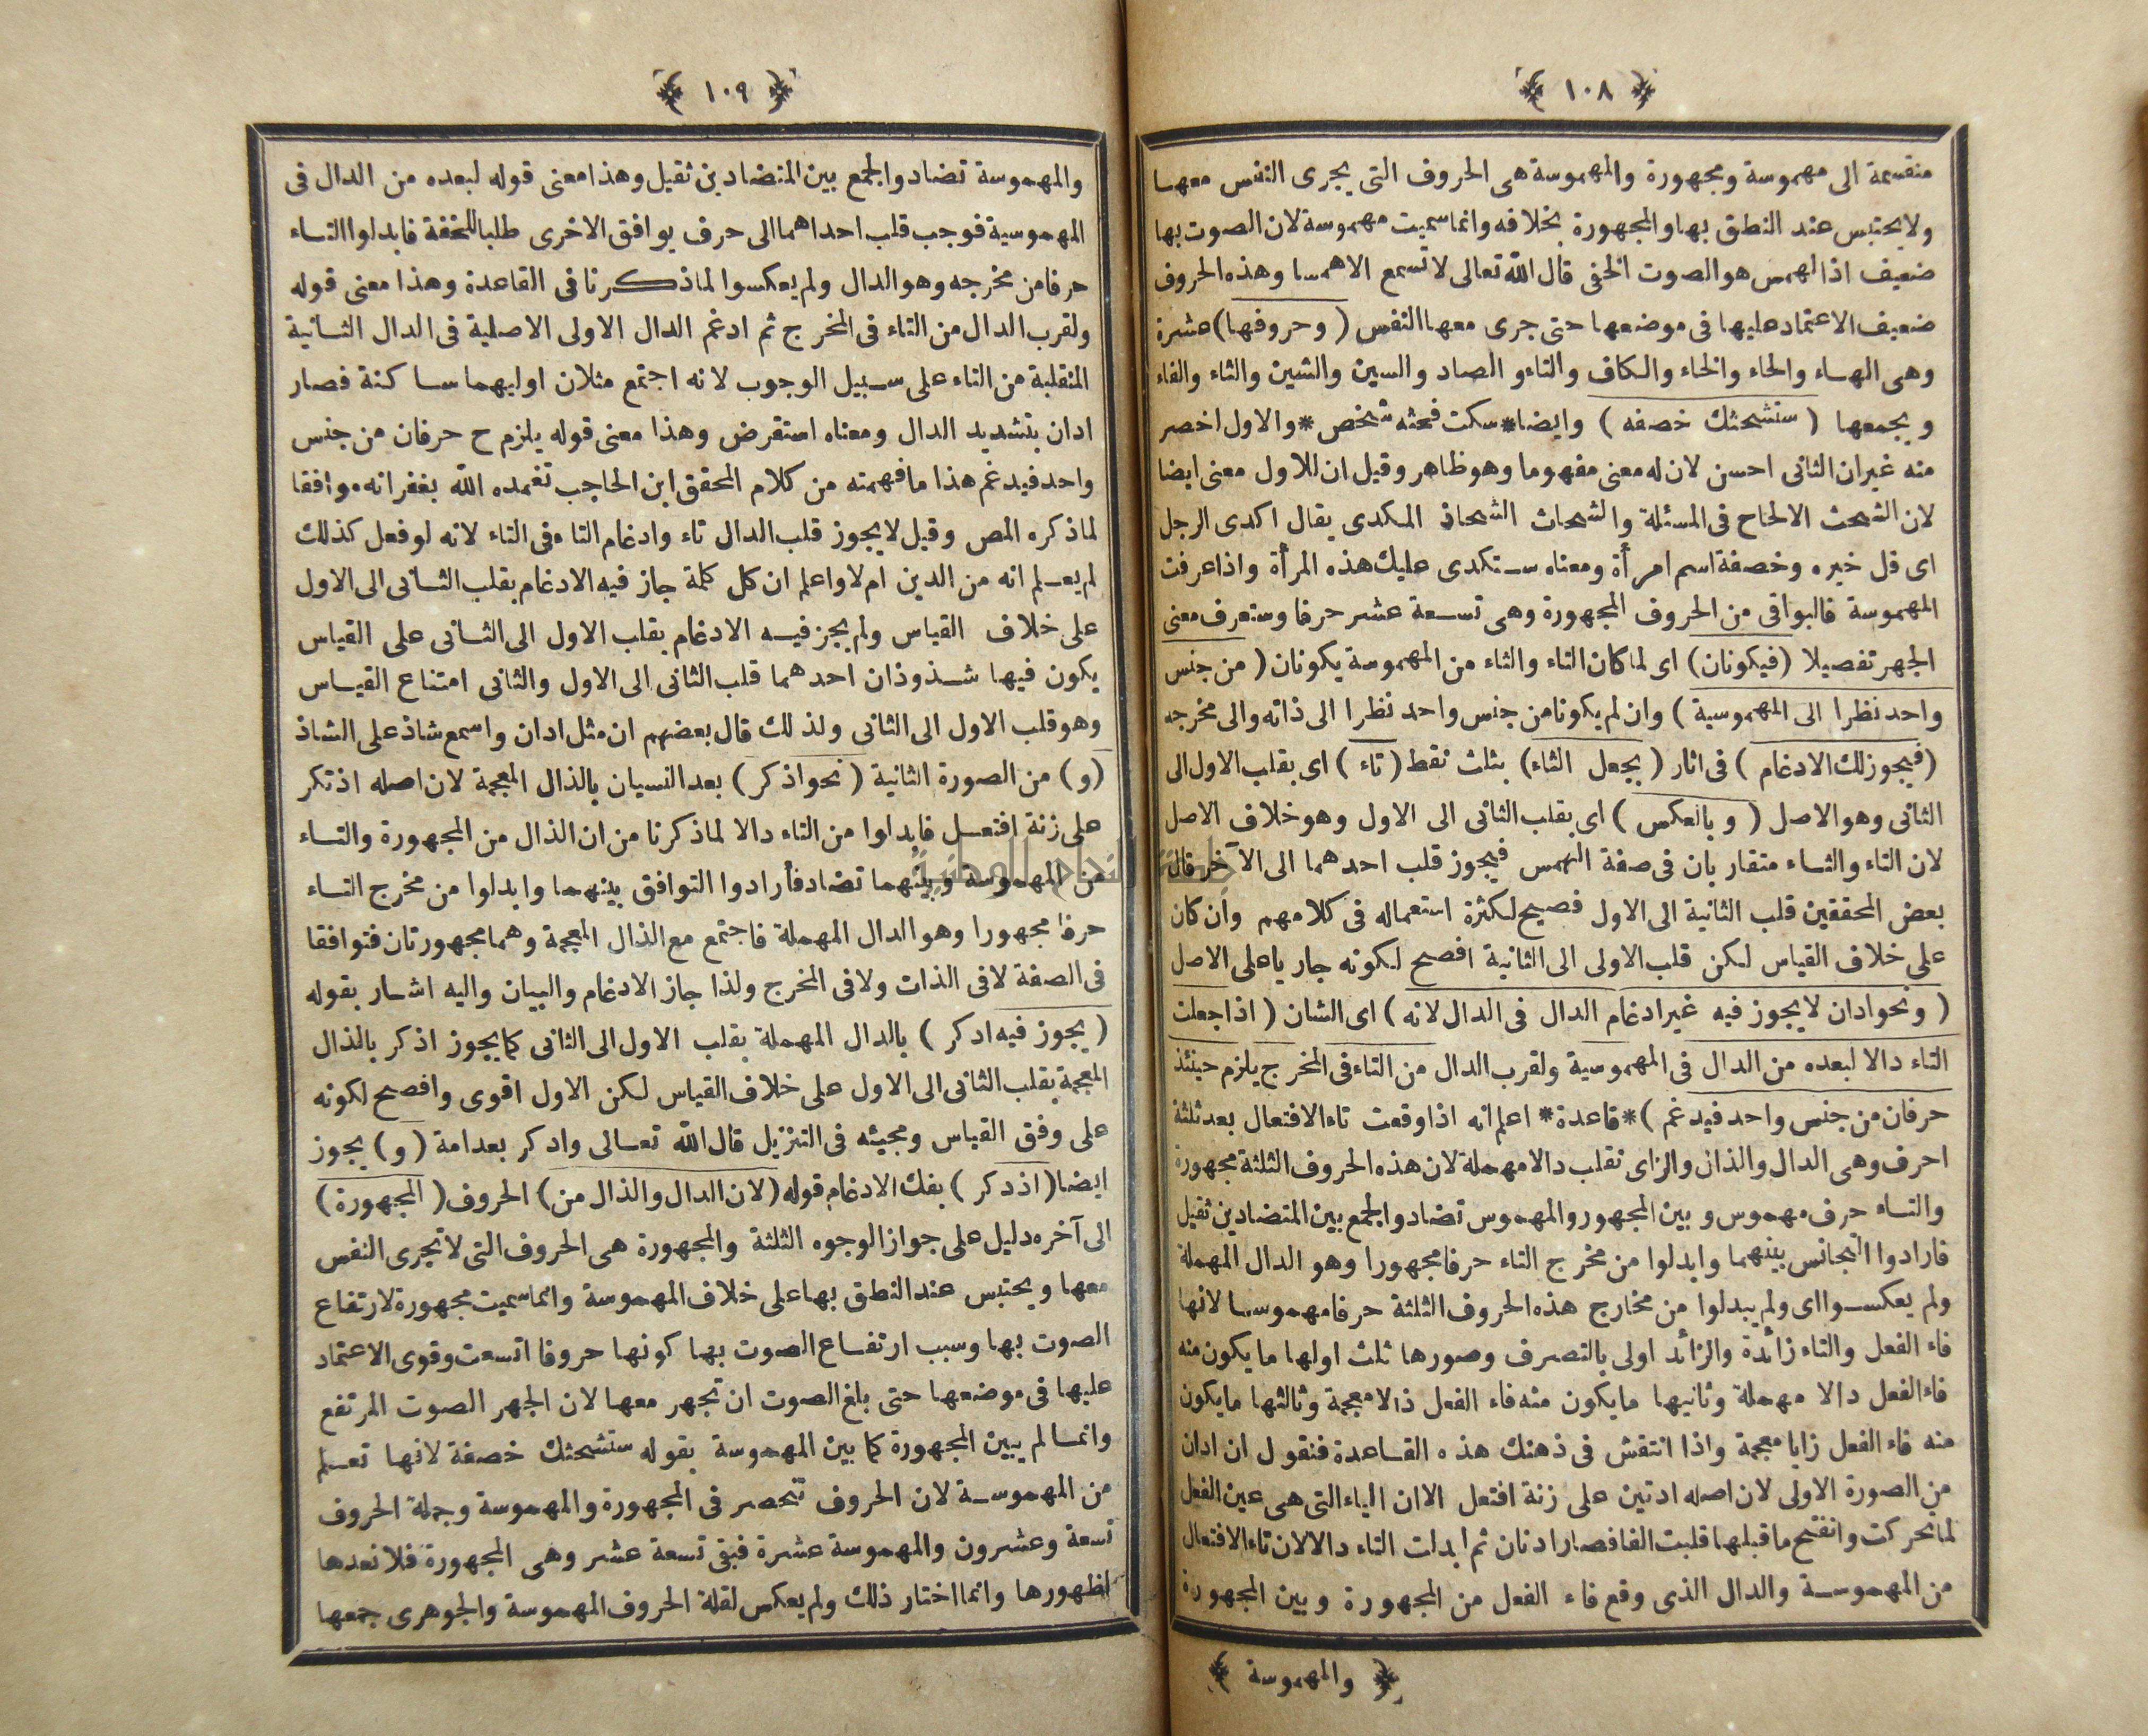 ﴿ ١٠٨ ﴾
منقسمة الى مهموسة ومجهورة والمهموسة هى الحروف التى يجرى النفس معها
ولا يحتبس عند النطق بها والمجهورة بخلافه وانما سميت مهموسة لان الصوت بها
ضعيف اذ الهمس هو الصوت الخفى قال الله تعالى لا تسمع الا همسا وهذه الحروف
ضعيف الاعتماد عليها فى موضعها حتى جرى معها النفس ( وحروفها ) عشرة
وهى الهاء والحاء والخاء والكاف والتاء والصاد والسين والشين والثاء والفاء
ويجمعها ( ستشحثك خصفه ) وايضا * سكت فحثه شخص * والاول اخصر
منه غير ان الثانى احسن لان له معنى مفهوما وهو ظاهر وقيل ان للاول معنى ايضا
لان الشحث الالحاح فى المسئلة والشحاث الشحاذ المكدى يقال اكدى الرجل
اى قل خيره وخصفة اسم امرأة ومعناه ستكدى عليك هذه المرأة واذا عرفت
المهموسة فالبواقى من الحروف المجهورة وهى تسعة عشر حرفا وستعرف معنى
الجهر تفصيلا ( فيكونان ) اى لما كان التاء والثاء من المهموسة يكونان ( من جنس
واحد نظرا الى المهموسية ) وان لم يكونا من جنس واحد نظرا الى ذاته والى مخرجه
( فيجوز لك الادغام ) فى اثار ( بجعل الثاء ) بثلث نقط ( تاء ) اى بقلب الاول الى
الثانى وهو الاصل ( وبالعكس ) اى بقلب الثانى الى الاول وهو خلاف الاصل
لان التاء والثاء متقاربان فى صفة الهمس فيجوز قلب احدهما الى الآخر قال
بعض المحققين قلب الثانية الى الاول فصيح لكثرة استعماله فى كلامهم وان كان
على خلاف القياس لكن قلب الاولى الى الثانية افصح لكونه جاريا على الاصل
( ونحو ادان لا يجوز فيه غير ادغام الدال فى الدال لانه ) اى الشان ( اذا جعلت
التاء دالا لبعده من الدال فى المهموسية ولقرب الدال من التاء فى المخرج يلزم حينئذ
حرفان من جنس واحد فيدغم ) * قاعدة * اعلم انه اذا وقعت تاء الافتعال بعد ثلثة
احرف وهى الدال والذال والزاى تقلب دالا مهملة لان هذه الحروف الثلثة مجهورة
والتاء حرف مهموس وبين المجهور والمهموس تضاد والجمع بين المتضادين ثقيل
فارادوا التجانس بينهما وابدلوا من مخرج التاء حرفا مجهورا وهو الدال المهملة
ولم يعكسوا اى ولم يبدلوا من مخارج هذه الحروف الثلثة حرفا مهموسا لانها
فاء الفعل والتاء زائدة والزائد اولى بالتصرف وصورها ثلث اولها ما يكون منه
فاء الفعل دالا مهملة وثانيها ما يكون منه فاء الفعل ذالا معجمة وثالثها ما يكون
منه فاء الفعل زايا معجمة واذا انتقش فى ذهنك هذه القاعدة فنقول ان ادان
من الصورة الاولى لان اصله ادتين على زنة افتعل الا ان الياء التى هى عين الفعل
لما تحركت وانفتح ما قبلها قلبت الفا فصار ادتان ثم ابدلت التاء دالا لان تاء الافتعال
من المهموسة والدال الذى وقع فاء الفعل من المجهورة وبين المجهورة
﴿ والمهموسة ﴾
﴿ ١٠٩ ﴾
والمهموسة تضاد والجمع بين المتضادين ثقيل وهذا معنى قوله لبعده من الدال فى
المهموسية فوجب قلب احداهما الى حرف يوافق الاخرى طلبا للخفة فابدلوا التاء
حرفا من مخرجه وهو الدال ولم يعكسوا لما ذكرنا فى القاعدة وهذا معنى قوله
ولقرب الدال من التاء فى المخرج ثم ادغم الدال الاولى الاصلية فى الدال الثانية
المنقلبة من التاء على سبيل الوجوب لانه اجتمع مثلان اوليهما ساكنة فصار
ادان بتشديد الدال ومعناه استقرض وهذا معنى قوله يلزم ح حرفان من جنس
واحد فيدغم هذا ما فهمته من كلام المحقق ابن الحاجب تغمده الله بغفرانه موافقا
لما ذكره المص وقيل لا يجوز قلب الدال تاء وادغام التاء فى التاء لانه لو فعل كذلك
لم يعلم انه من الدين ام لا واعلم ان كل كلمة جاز فيه الادغام بقلب الثانى الى الاول
على خلاف القياس ولم يجز فيه الادغام بقلب الاول الى الثانى على القياس
يكون فيها شذوذان احدهما قلب الثانى الى الاول والثانى امتناع القياس
وهو قلب الاول الى الثانى ولذلك قال بعضهم ان مثل ادان واسمع شاذ على الشاذ
( و ) من الصورة الثانية ( نحو اذكر ) بعد النسيان بالذال المعجمة لان اصله اذتكر
على زنة افتعل فابدلوا من التاء دالا لما ذكرنا من ان الذال من المجهورة والتاء
من المهموسة وبينهما تضاد فأرادوا التوافق بينهما وابدلوا من مخرج التاء
حرفا مجهورا وهو الدال المهملة فاجتمع مع الذال المعجمة وهما مجهورتان فتوافقا
فى الصفة لا فى الذات ولا فى المخرج ولذا جاز الادغام والبيان واليه اشار بقوله
( يجوز فيه ادكر ) بالدال المهملة بقلب الاول الى الثانى كما يجوز اذكر بالذال
المعجمة بقلب الثانى الى الاول على خلاف القياس لكن الاول اقوى وافصح لكونه
على وفق القياس ومجيئه فى التنزيل قال الله تعالى وادكر بعد امة ( و ) يجوز
ايضا ( اذدكر ) بفك الادغام قوله ( لان الدال والذال من ) الحروف ( المجهورة )
الى آخره دليل على جواز الوجوه الثلثة والمجهورة هى الحروف التى لا تجرى النفس
معها ويحتبس عند النطق بها على خلاف المهموسة وانما سميت مجهورة لارتفاع
الصوت بها وسبب ارتفاع الصوت بها كونها حروفا اتسعت وقوى الاعتماد
عليها فى موضعها حتى بلغ الصوت ان تجهر معها لان الجهر الصوت المرتفع
وانما لم يبين المجهورة كما بين المهموسة بقوله ستشحثك خصفة لانها تعلم
من المهموسة لان الحروف تنحصر فى المجهورة والمهموسة وجملة الحروف
تسعة وعشرون والمهموسة عشرة فبقى تسعة عشر وهى المجهورة فلا نعدها
لظهورها وانما اختار ذلك ولم يعكس لقلة الحروف المهموسة والجوهرى جمعها